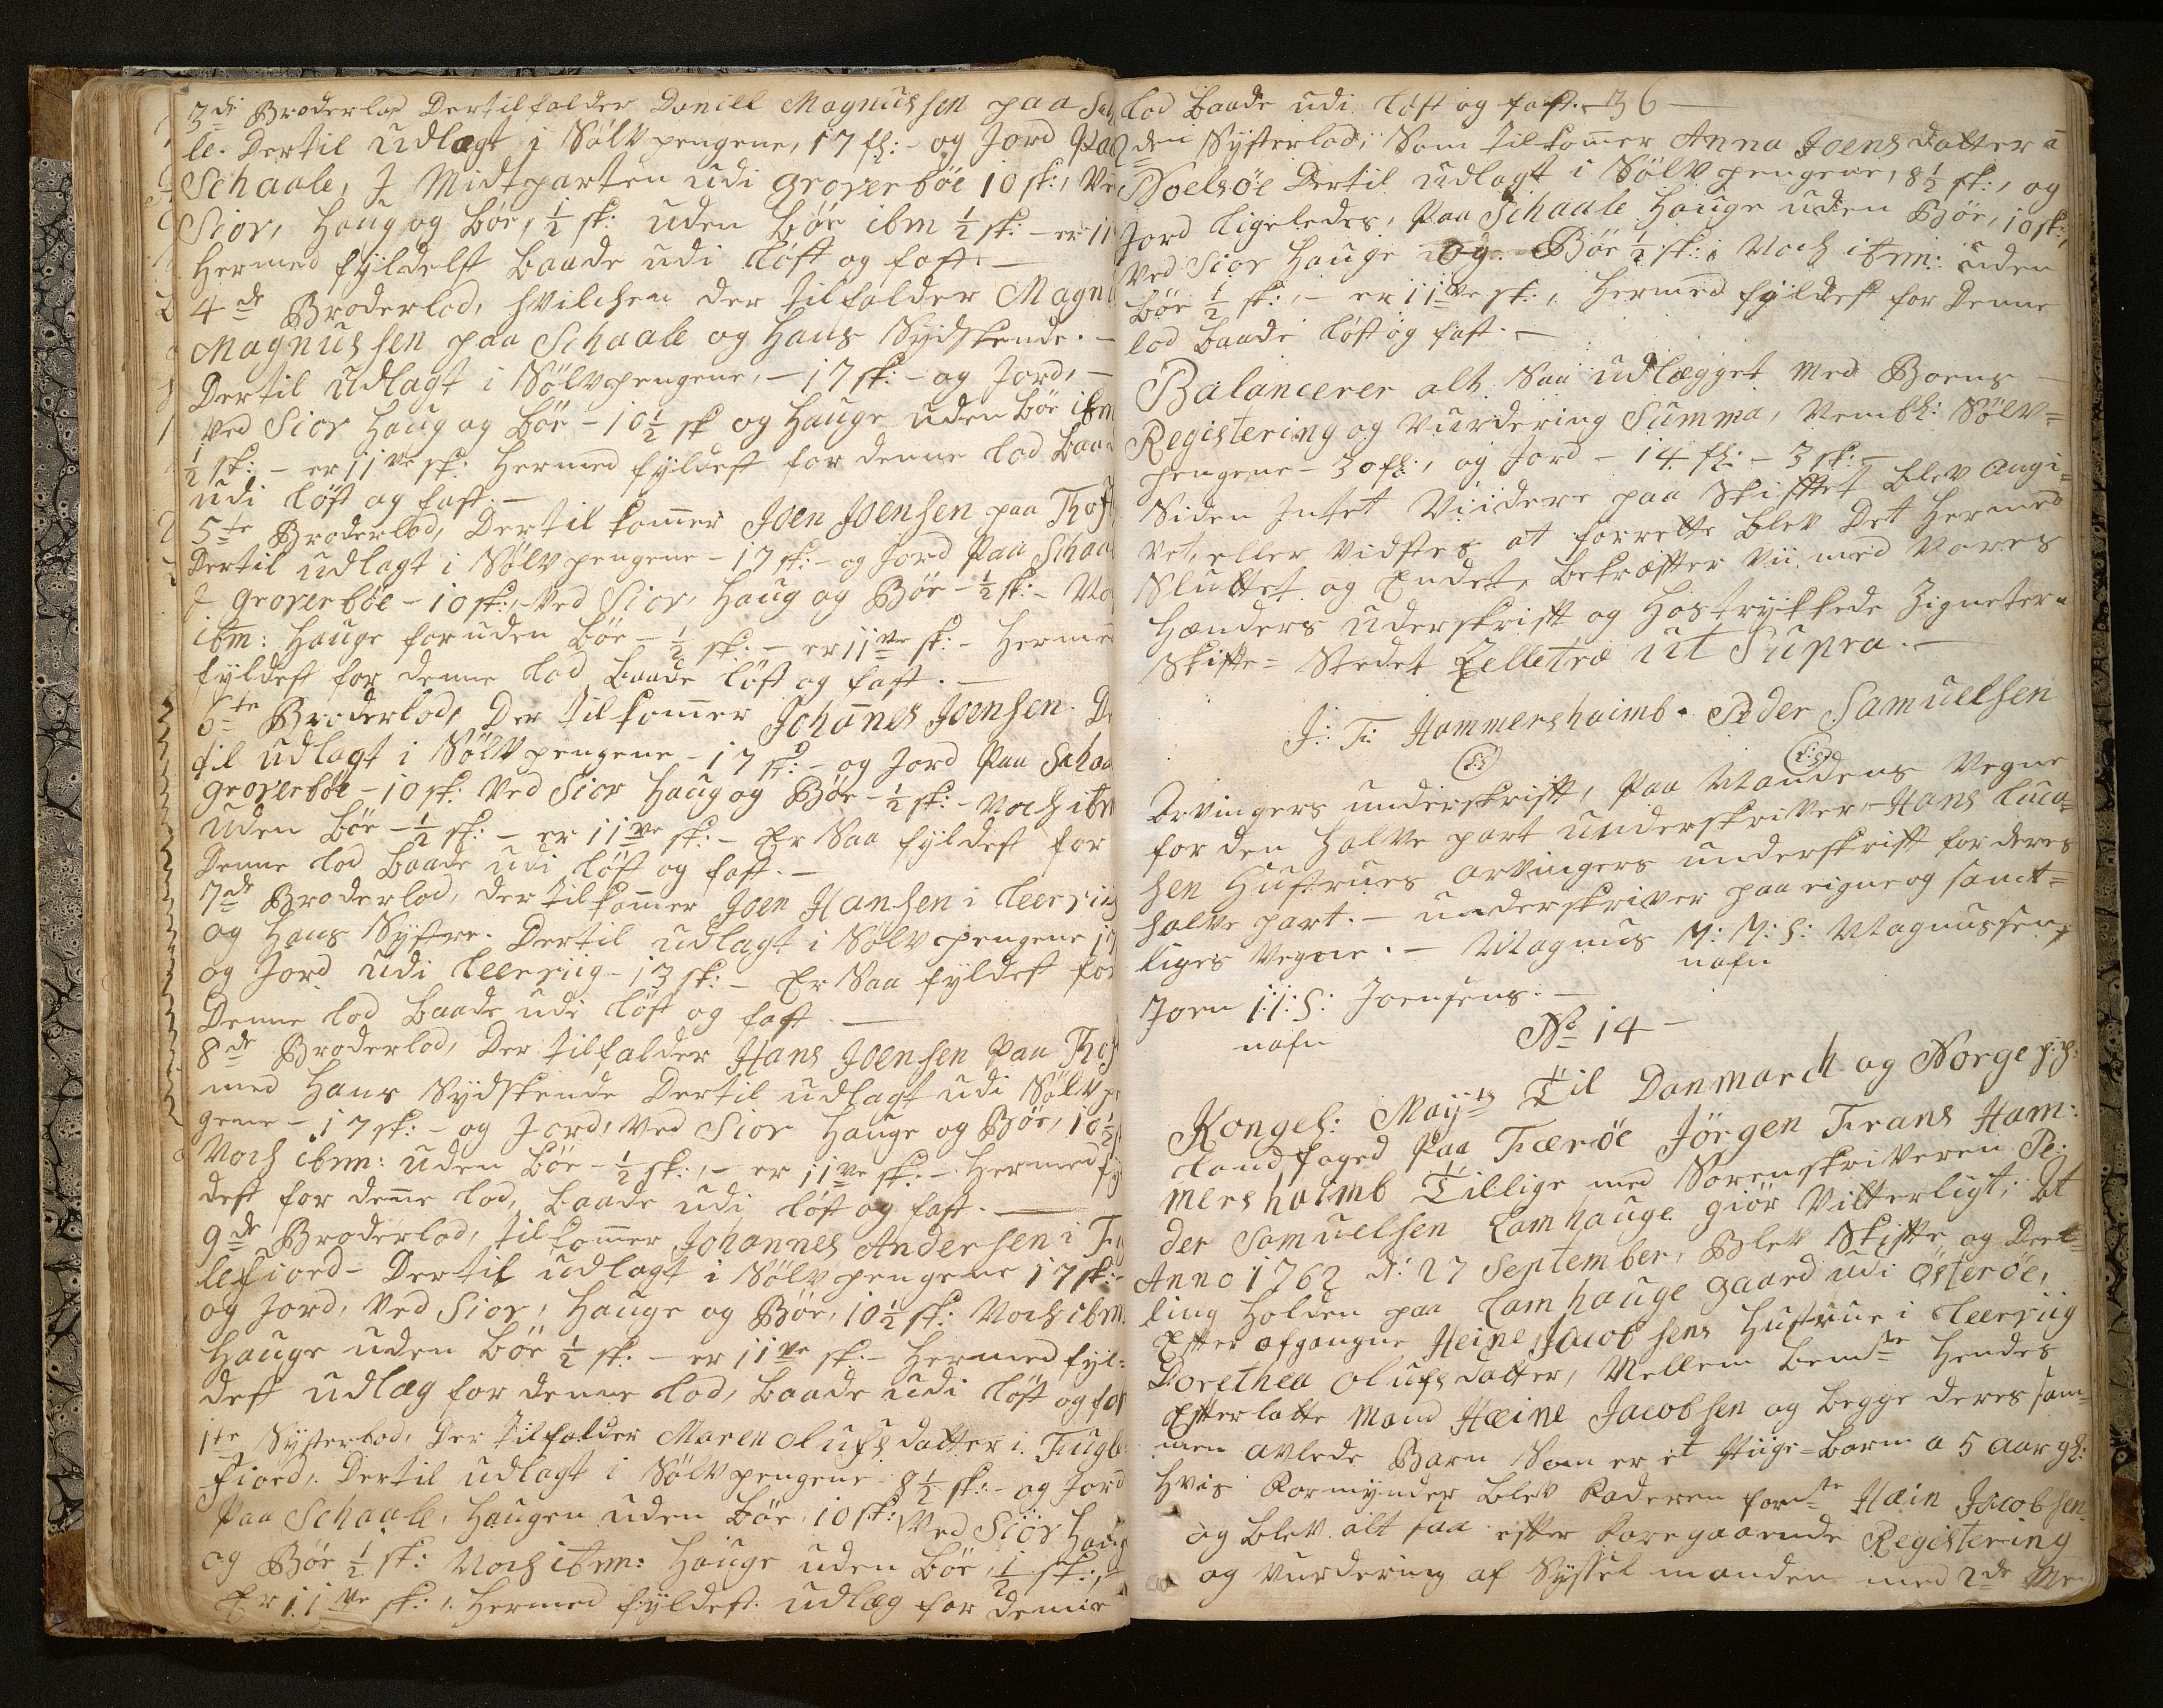 3de Broderlod Dertilfalder Daniell Magnussen paa Scha
le. Dertil udlagt i Sölvpengene, 17 sk:- og Jord Paa
Schaale, J Midtparten udi Groverböe 10 sk:, Ve
Sior, Haug og Böe, ½ sk: uden Böe ibm ½ sk: - er 11
Hermed fyldelst baade udi löst og fast. —
4de Broderlod, hvilchen der tilfalder Magn
Magnussen paa Schaale og Hans Sydskende. -
Dertil udlagt i Sölvpengene, - 17 sk:- og Jord, -
ved Sior Haug og Böe - 10½ sk og Hauge uden Böe ibm
½ sk: - er 11ve sk: Hermed fyldest for denne lod baad
udi löst og fast. —
5te Broderlod, Dertil kom̄er Joen Joensen paa Thof
Dertil udlagt i Sölvpengene - 17 sk:- og Jord Paa Schaa
J Groverböe - 10 sk:, ved Sior, Haug og Böe - ½ sk:- No
ibm: Hauge foruden Böe - ½ sk: - er 11ve sk:- Herme
fyldest for denne lod baade löst og fast. —
6te Broderlod, Der tilkom̄er Johan̄es Joensen. De
til udlagt i Sölvpengene - 17 sk:- og Jord Paa Schaa
Groverböe - 10 sk: Ved Sior Haug og Böe - ½ sk:- Noch ibm
uden Böe - ½ sk: - er 11ve sk:- Er Saa fyldest for
Denne lod baade udi löst og fast. —
7de Broderlod, der tilkom̄er Joen Hansen i Leeriig
og Hans Systre. Dertil udlagt i Sölvpengene 17
og Jord udi Leeriig - 13 sk:- Er Saa fyldest for
Denne lod baade udi löst og fast. —
8de Broderlod, Der tilfalder Hans Joensen Paa Thof
med Hans Sydskende Dertil udlagt udi Sölvpe
gene - 17 sk:- og Jord, ved Sior Hauge og Böe, 10½
Noch ibm: uden Böe - ½ sk:, - er 11ve sk:- Hermed fy
dest for den̄e lod, baade udi löst og fast. —
9de Broderlod, tilkom̄er Johannes Andersen i Fu
lefiord - Dertil udlagt i Sölvpengene 17 sk:-
og Jord, ved Sior, Hauge og Böe, 10½ sk: Noch ibm.
Hauge uden Böe ½ sk: - er 11ve sk:- Hermed fyl:
dest udlæg for denne lod, baade udi löst og fas
1te Systerlod, Der tilfalder Maren Olufsdatter i Fugle
fiord. Dertil udlagt i Sölvpengene 8½ sk:- og Jord
Paa Schaale, Haugen uden Böe, 10 sk: Ved Siör Haug
og Böe ½ sk: Noch ibm: Hauge uden Böe, ½ sk:,
Er 11ve sk:, Hermed fyldest udlæg for denne
lod baade udi löst og fast. - 36 -
2den Systerlod, Som tilkom̄er Anna Joensdatter a
Noelsöe Dertil udlagt i Sölvpengene, 8½ sk:, og
Jord ligeledes, Paa Schaale Hauge uden Böe, 10 sk:,
Ved Sior Hauge og Böe ½ sk:, Noch ibm: uden
Böe ½ sk:, - er 11ve sk:, Hermed fyldest for Denne
lod baade löst og fast. —
Balancerer alt Saa udlægget med Boens —
Registering og Vurdering Summa, Nembl: Sölv=
pengene - 30 fl:, og Jord - 14 fl: - 3 sk:-
Siden Intet Viidere paa Skifftet blev angi=
vet, eller vidstes at forrette blev Det Hermed
Sluttet og Endet, bekræfter Vii med Vores
Hænders Underskrift og Hostrykkede Zigneter
Skifte= Stedet Zelletræ ut Supra. —
J: F: Hammershaimb. Peder Samuelsen
(L:S:) (L:S:)
Arvingers underskrift, Paa Mandens Vegne
for den Halve part underskriver Hans Luca=
sen Hustrues Arvingers underskrift for deres
halve part. - underskriver paa eigne og samt=
liges Vegne. - Magnus M: M: S: Magnussen,
nafn
Joen I: I: S: Joensens. —
nafn
No 14 -
Kongel: Mayts Til Danmarch og Norge p: p:
Landfoged Paa Færöe Jörgen Frans Ham:
mershaimb Tillige med Sorenskriveren Pe:
der Samuelsen Lamhauge giör Vitterligt; At
Anno 1762 d: 27 September, Blev Skifte og Deel=
ling Holden paa Lamhauge Gaard udi Österöe,
Efter afgangne Heine Jacobsens Hustrue i Leeriig
Dorethea Olufsdatter, Mellem bemte Hendes
Efterlatte Mand Heine Jacobsen og begge deres sam=
men avlede Barn Som er et Piige=barn a 5 aar gl:
Hvis Formynder blev Faderen formte Hein Jacobsen
og blev alt saa efter foregaaende Registering
og Vurdering af Sysselmanden med 2de Me